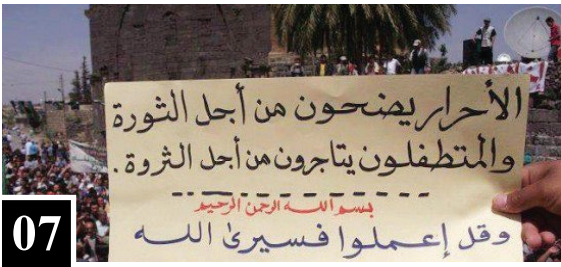 الأحرار يضحون من أجل الثورة
والمتطفلون يتاجرون من أجل الثروة.
بسم الله الرحمن الرحيم
وقل إعملوا فسيرى الله
07